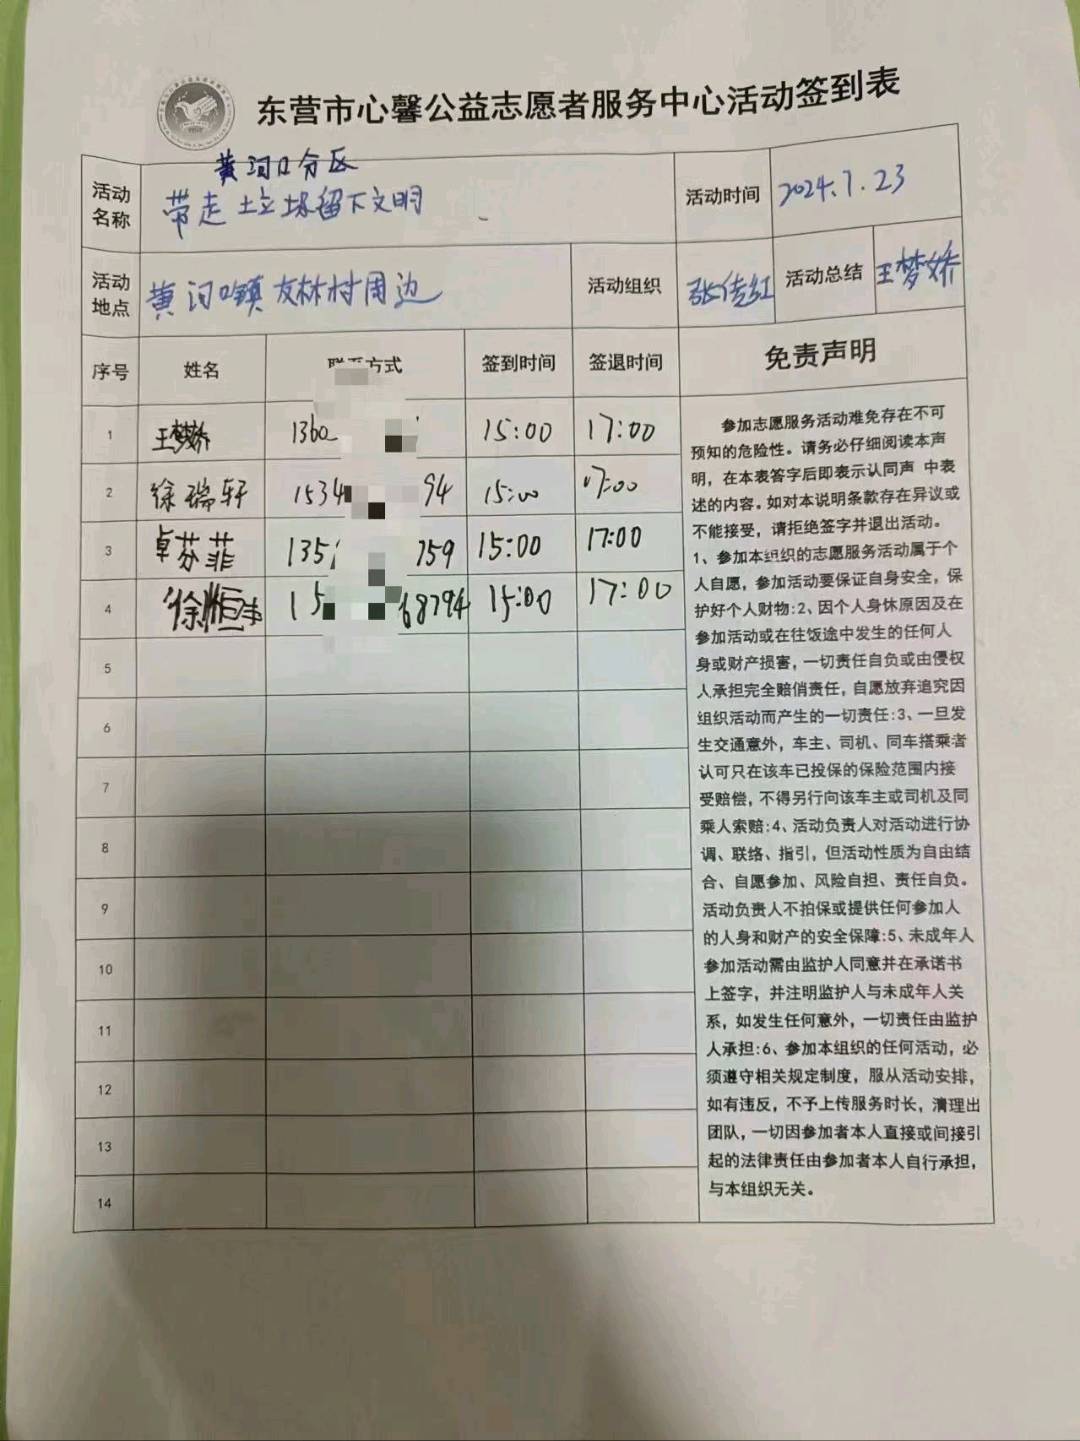 东营市心馨公益志愿者服务中心活动签到表
黄河口分区
活动名称 带走垃圾留下文明 活动时间 2024.7.23
活动地点 黄河口镇友林村周边 活动组织 张传红 活动总结 王梦娇
序号 姓名 联系方式 签到时间 签退时间 免责声明
1 王梦娇 1360 15:00 17:00
2 徐瑞轩 1534 94 15:00 17:00
3 卓芬菲 135 759 15:00 17:00
4 徐恒 15 68794 15:00 17:00
5
6
7
8
9
10
11
12
13
14
参加志愿服务活动难免存在不可
预知的危险性。请务必仔细阅读本声
明，在本表答字后即表示认同声 中表
述的内容。如对本说明条款存在异议或
不能接受，请拒绝签字并退出活动。
1、参加本组织的志愿服务活动属于个
人自愿，参加活动要保证自身安全，保
护好个人财物:2、因个人身休原因及在
参加活动或在往饭途中发生的任何人
身或财产损害，一切责任自负或由侵权
人承担完全赔俏责任，自愿放弃追究因
组织活动而产生的一切责任:3、一旦发
生交通意外，车主、司机、同车搭乘者
认可只在该车已投保的保险范围内接
受赔偿，不得另行向该车主或司机及同
乘人索赔:4、活动负责人对活动进行协
调、联络、指引，但活动性质为自由结
合、自愿参加、风险自担、责任自负。
活动负责人不拍保或提供任何参加人
的人身和财产的安全保障:5、未成年人
参加活动需由监护人同意并在承诺书
上签字，并注明监护人与未成年人关
系，如发生任何意外，一切责任由监护
人承担:6、参加本组织的任何活动，必
须遵守相关规定制度，服从活动安排，
如有违反，不予上传服务时长，清理出
团队，一切因参加者本人直接或间接引
起的法律责任由参加者本人自行承担，
与本组织无关。